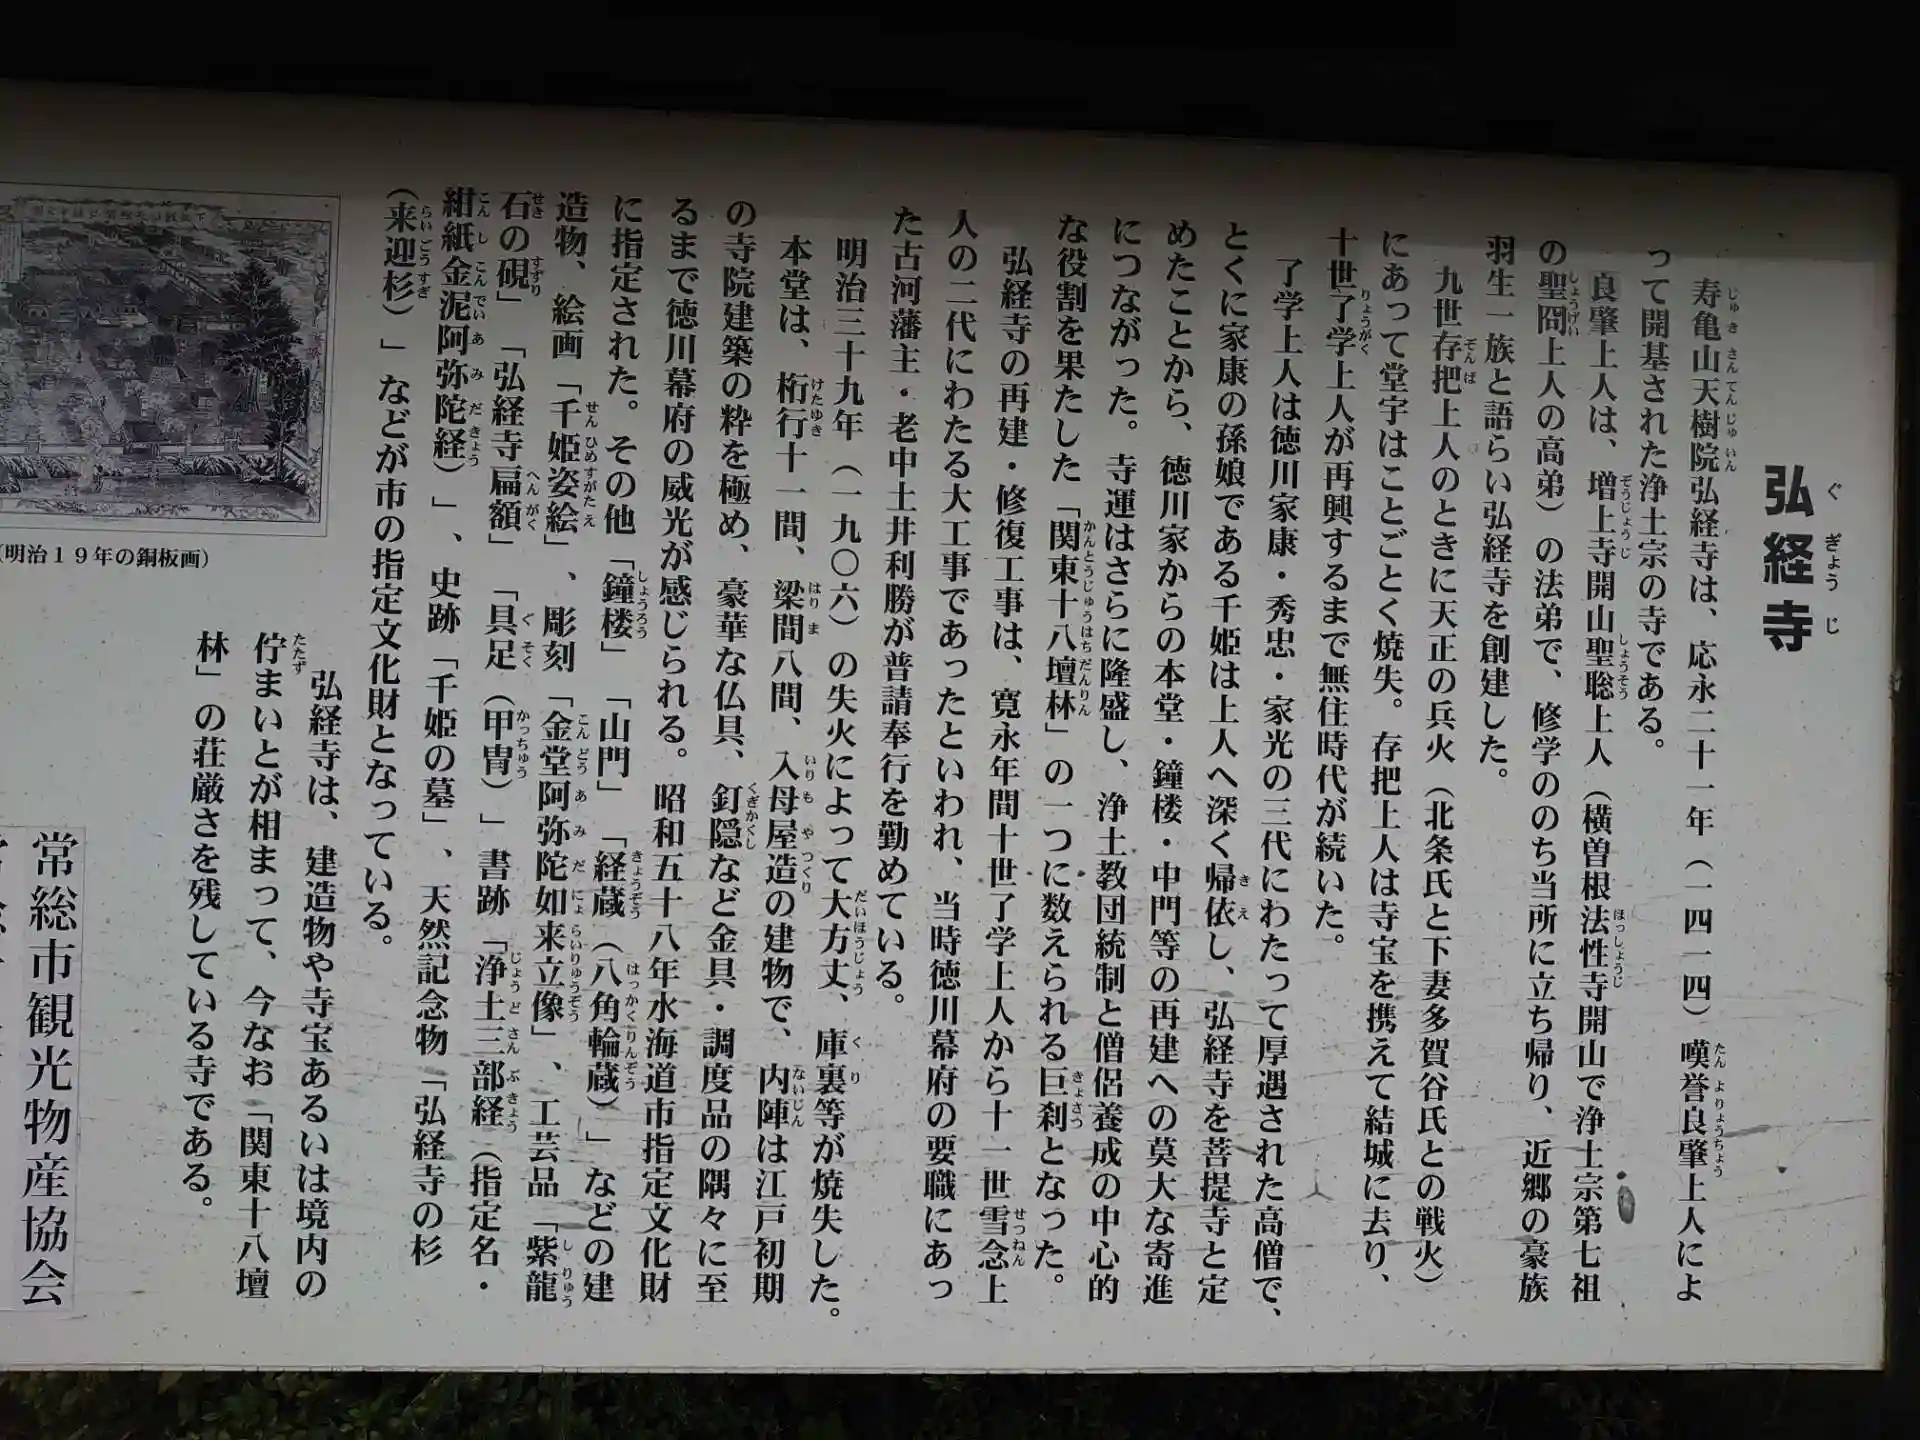 弘経寺
寿亀山天樹院弘経寺は、応永二十一年（一四一四）嘆誉良肇上人によ
って開基された浄土宗の寺である。
良肇上人は、増上寺開山聖聡上人（横曽根法性寺開山で浄土宗第七祖
の聖冏上人の高弟）の法弟で、修学ののち当所に立ち帰り、近郷の豪族
羽生一族と語らい弘経寺を創建した。
九世存把上人のときに天正の兵火（北条氏と下妻多賀谷氏との戦火）
にあって堂宇はことごとく焼失。存把上人は寺宝を携えて結城に去り、
十世了学上人が再興するまで無住時代が続いた。
了学上人は徳川家康・秀忠・家光の三代にわたって厚遇された高僧で、
とくに家康の孫娘である千姫は上人へ深く帰依し、弘経寺を菩提寺と定
めたことから、徳川家からの本堂・鐘楼・中門等の再建への莫大な寄進
につながった。寺運はさらに隆盛し、浄土教団統制と僧侶養成の中心的
な役割を果たした「関東十八壇林」の一つに数えられる巨刹となった。
弘経寺の再建・修復工事は、寛永年間十世了学上人から十一世雪念上
人の二代にわたる大工事であったといわれ、当時徳川幕府の要職にあっ
た古河藩主・老中土井利勝が普請奉行を勤めている。
明治三十九年（一九〇六）の失火によって大方丈、庫裏等が焼失した。
本堂は、桁行十一間、梁間八間、入母屋造の建物で、内陣は江戸初期
の寺院建築の粋を極め、豪華な仏具、釘隠など金具・調度品の隅々に至
るまで徳川幕府の威光が感じられる。昭和五十八年水海道市指定文化財
に指定された。その他「鐘楼」「山門」「経蔵（八角輪蔵）」などの建
造物、絵画「千姫姿絵」、彫刻「金堂阿弥陀如来立像」、工芸品「紫龍
石の硯」「弘経寺扁額」「具足（甲冑）」書跡「浄土三部経（指定名・
紺紙金泥阿弥陀経）」、史跡「千姫の墓」、天然記念物「弘経寺の杉
（来迎杉）」などが市の指定文化財となっている。
弘経寺は、建造物や寺宝あるいは境内の
佇まいとが相まって、今なお「関東十八壇
林」の荘厳さを残している寺である。
（明治１９年の銅板画）
常総市観光物産協会